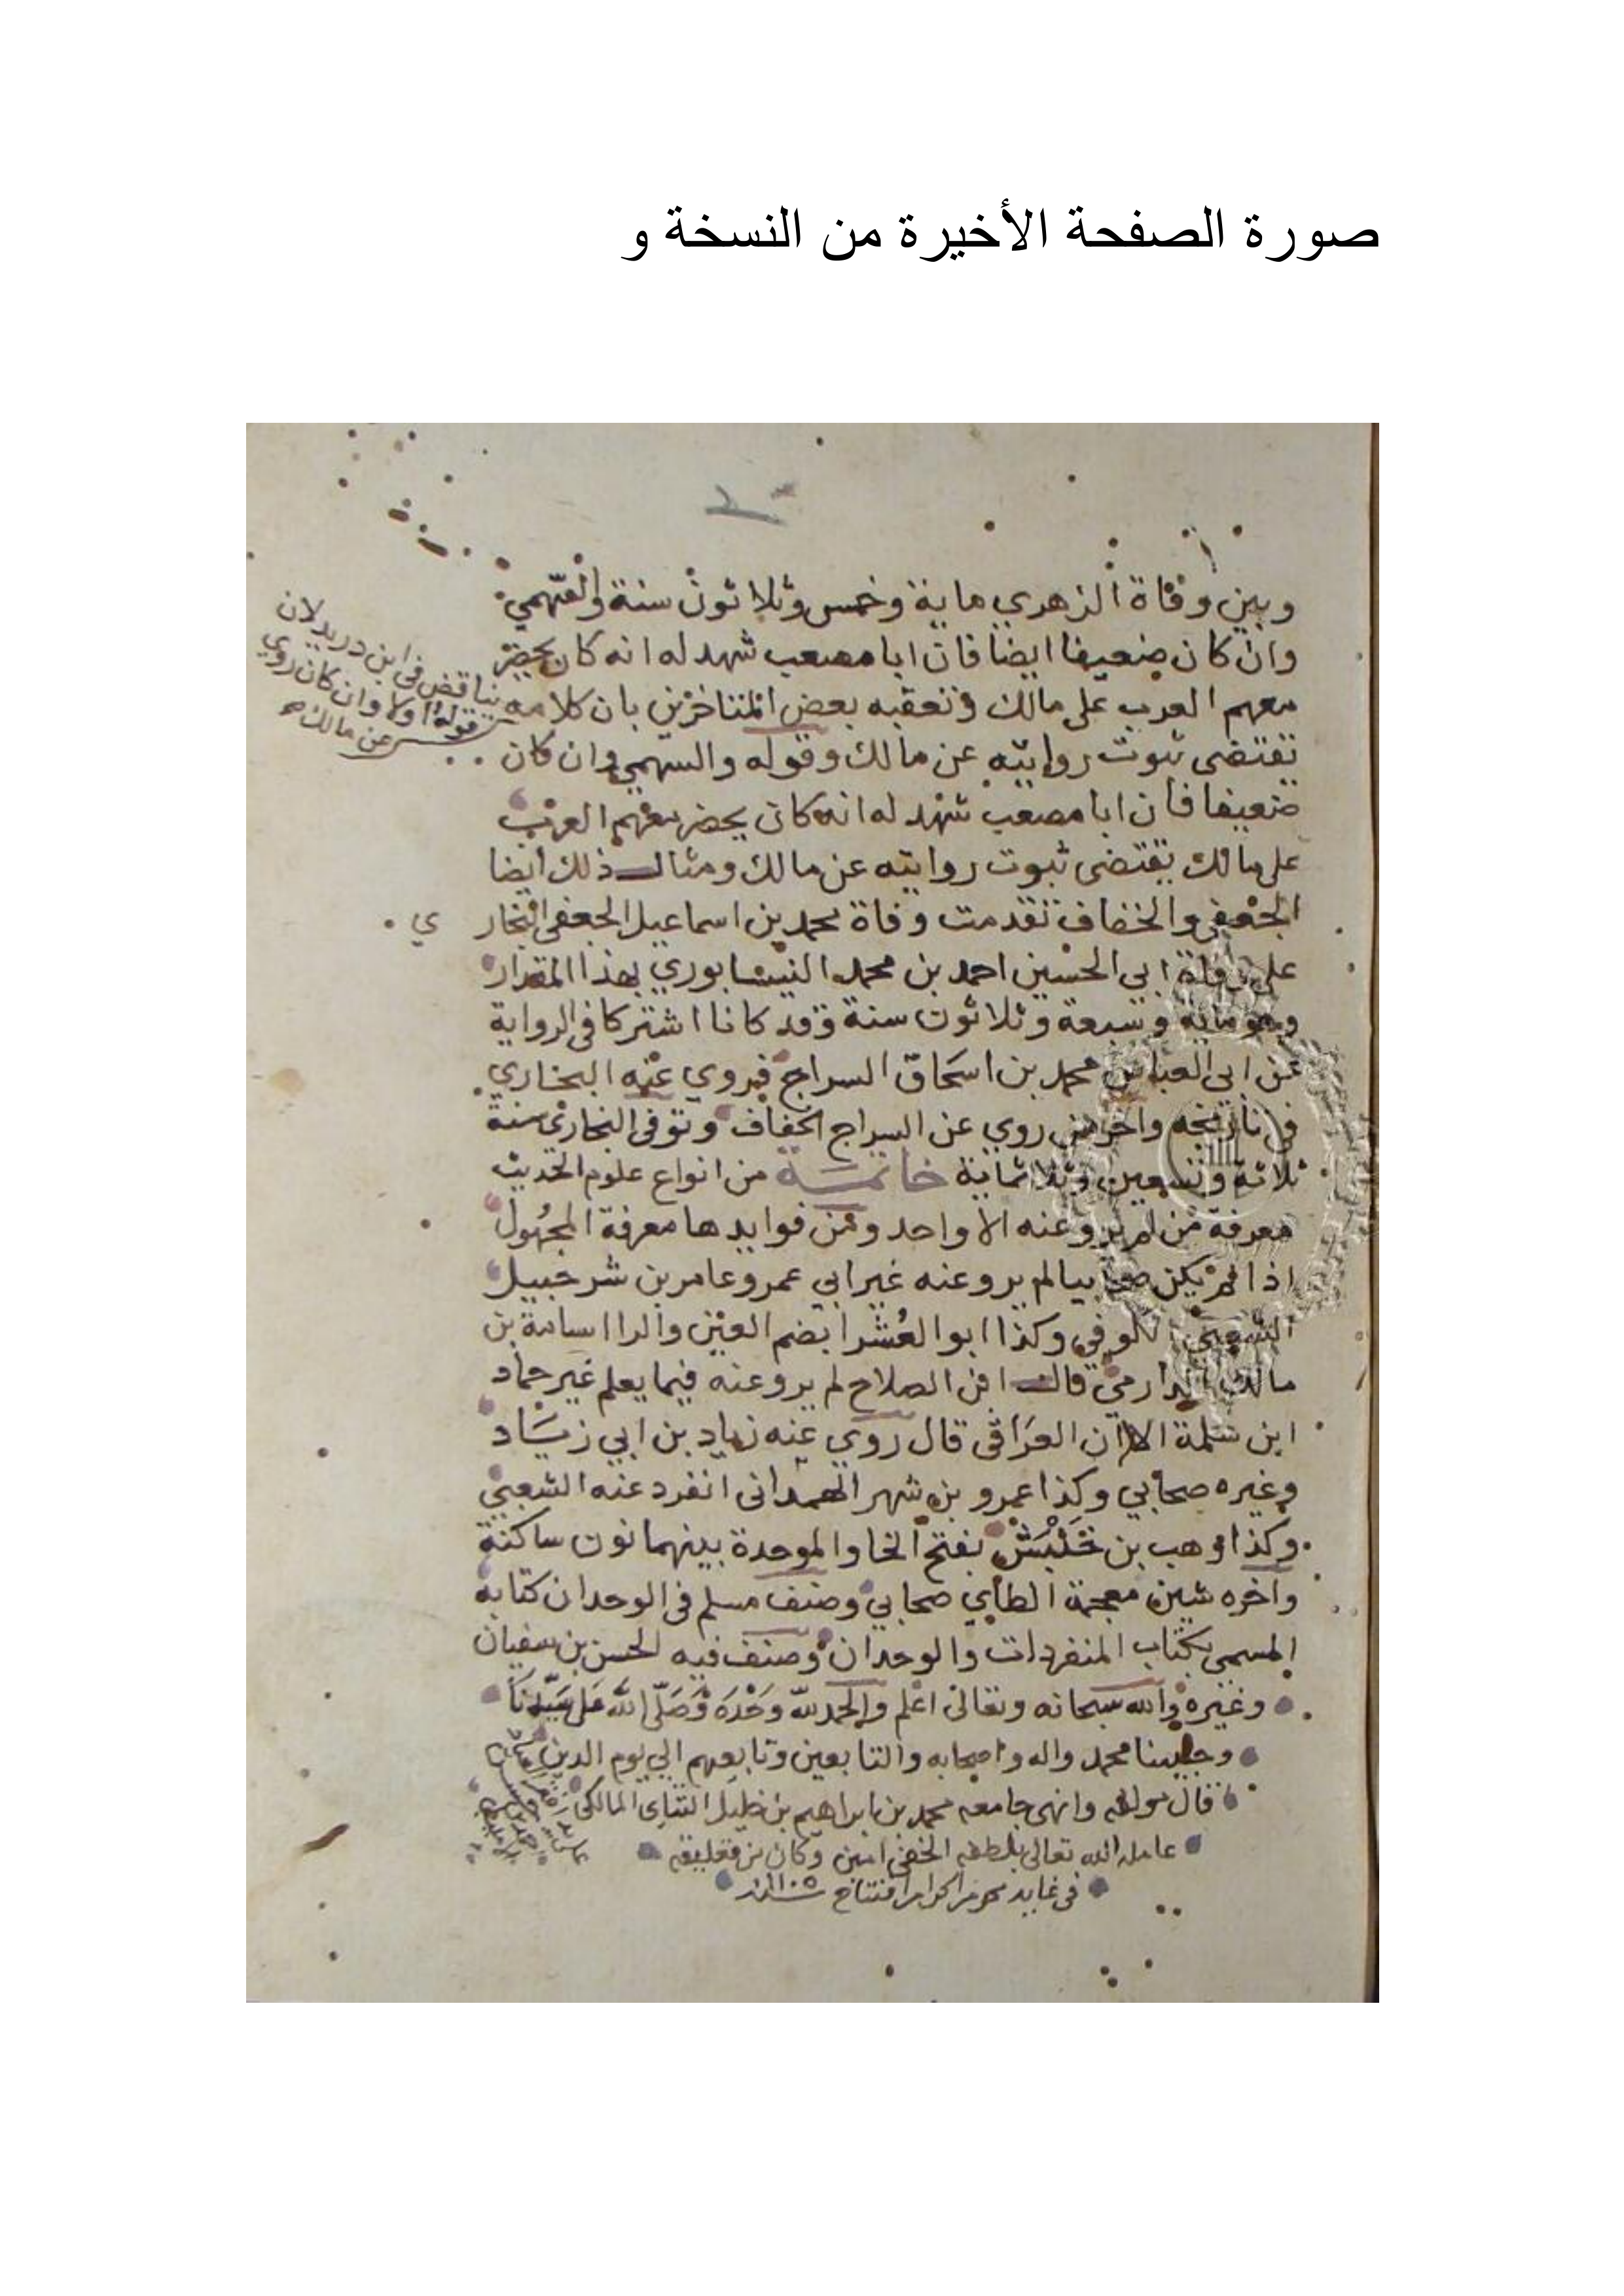 صورة الصفحة الأخيرة من النسخة و
وبين وفاة الزهري ماية وخمس وثلاثون سنة والسهمي
وان كان ضعيفا ايضا فان ابا مصعب شهد له انه كان يحضر
معهم العرب على مالك وتعقبه بعض المتاخرين بان كلامه
يناقض في ابن دريد لان
قوله اولا وان كان روي
عن مالك
تقتضى ثبوت روايته عن مالك وقوله والسهمي وان كان
ضعيفا فان ابا مصعب شهد له انه كان يحضر معهم العرب
على مالك يقتضى ثبوت روايته عن مالك ومثال ذلك ايضا
الجعفي والخفاف تقدمت وفاة محمد بن اسماعيل الجعفى البخاري
على وفاة ابى الحسين احمد بن محمد النيسابوري بهذا المقدار
وهو ماية وسبعة وثلاثون سنة وقد كانا اشتركا فى الرواية
عن ابى العباس محمد بن اسحاق السراج فروي عنه البخاري
فى تاريخه واخر من روي عن السراج الخفاف وتوفى البخارى سنة
ثلاثة وتسعين وثلاثماية خاتمة من انواع علوم الحديث
معرفة من لم يرو عنه الا واحد ومن فوايدها معرفة المجهول
اذا لم يكن صحابيا لم يرو عنه غير ابي عمرو عامر بن شرحبيل
الشعبي الكوفي وكذا ابو العشرا بضم العين والرا اسامة بن
مالك الدارمي قال ابن الصلاح لم يرو عنه فيما يعلم غير حماد
ابن سلمة الا ان العراقى قال روي عنه زياد بن ابي زياد
وغيره صحابي وكذا عمرو بن شهر الهمدانى انفرد عنه الشعبي
وكذا وهب بن خنبش بفتح الخا والموحدة بينهما نون ساكنة
واخره شين معجمة الطاي صحابي وصنف مسلم فى الوحدان كتابه
المسمى بكتاب المنفردات والوحدان وصنف فيه الحسن بن سفيان
وغيره والله سبحانه وتعالى اعلم والحمد لله وحده وصلى الله على سيدنا
وحبيبنا محمد واله واصحابه والتابعين وتابعهم الي يوم الدين
قال مولفه وانهى جامعه محمد بن ابراهيم بن خليل التتاى المالكى
عامله الله تعالى بلطفه الخفى امين وكان من تعليقه
فى غاية محرم الحرام افتتاح سنة ١١٠٥